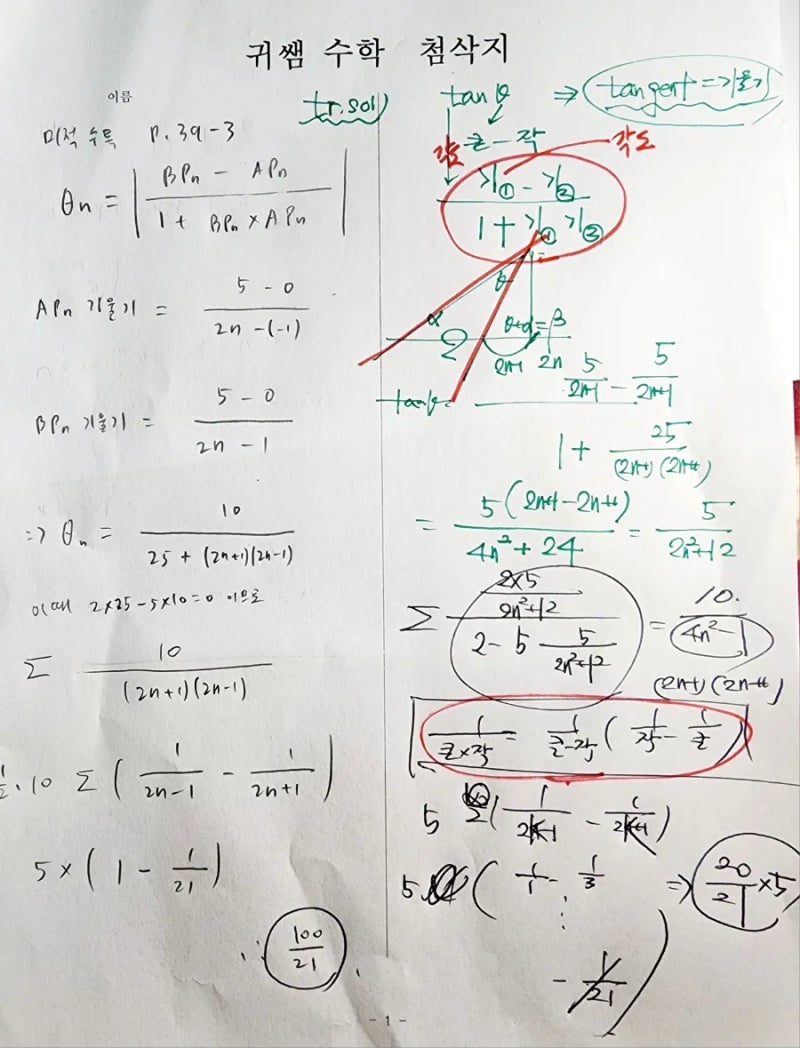 귀쌤 수학 첨삭지
이름
미적 수특 P.39-3
θn = | (BPn - APn) / (1 + BPn × APn) |
APn 기울기 = (5 - 0) / (2n - (-1))
BPn 기울기 = (5 - 0) / (2n - 1)
=> θn = 10 / (25 + (2n+1)(2n-1))
이때 2×25-5×10=0 이므로
Σ 10 / ((2n+1)(2n-1))
1/2 · 10 Σ ( 1/(2n-1) - 1/(2n+1) )
5 × ( 1 - 1/21 )
∴ 100/21 .
tr.sol)
tanθ ⇒ tangent = 기울기
각도 큰 - 작 각도
(기① - 기②) / (1 + 기① 기②)
θ
α θ+α = β
2n-1 2n
tanθ = (5/(2n-1) - 5/(2n+1)) / (1 + 25/((2n-1)(2n+1)))
= 5(2n+1-2n+1) / (4n²+24) = 5 / (2n²+12)
Σ (2×5/(2n²+12)) / (2 - 5 5/(2n²+12)) = 10. / (4n²-1)
(2n-1)(2n+1)
1/(큰×작) = 1/(큰-작) ( 1/작 - 1/큰 )
5 Σ ( 1/(2k-1) - 1/(2k+1) )
5 ( 1/1 - 1/3 ⇒ 20/21 × 5
- 1/21 )
- 1 -